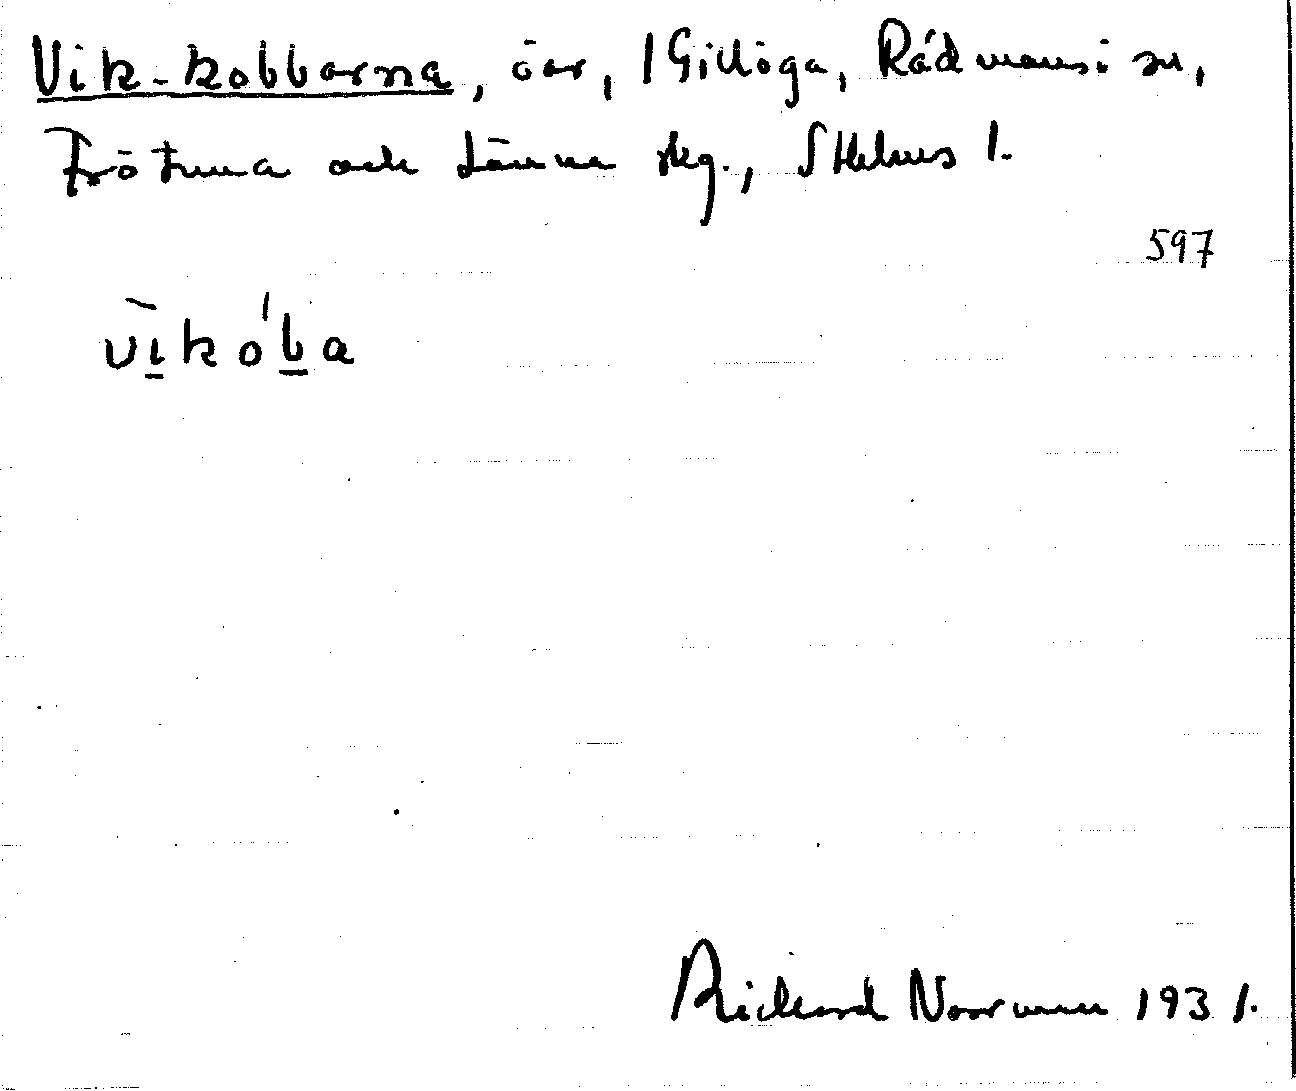 Vik-kobbarna, öar, I Gillöga, Rådmansö sn,
Frötuna och Länna skg., Sthlms l.
597
vikoba
Rickard Norrman 1931.